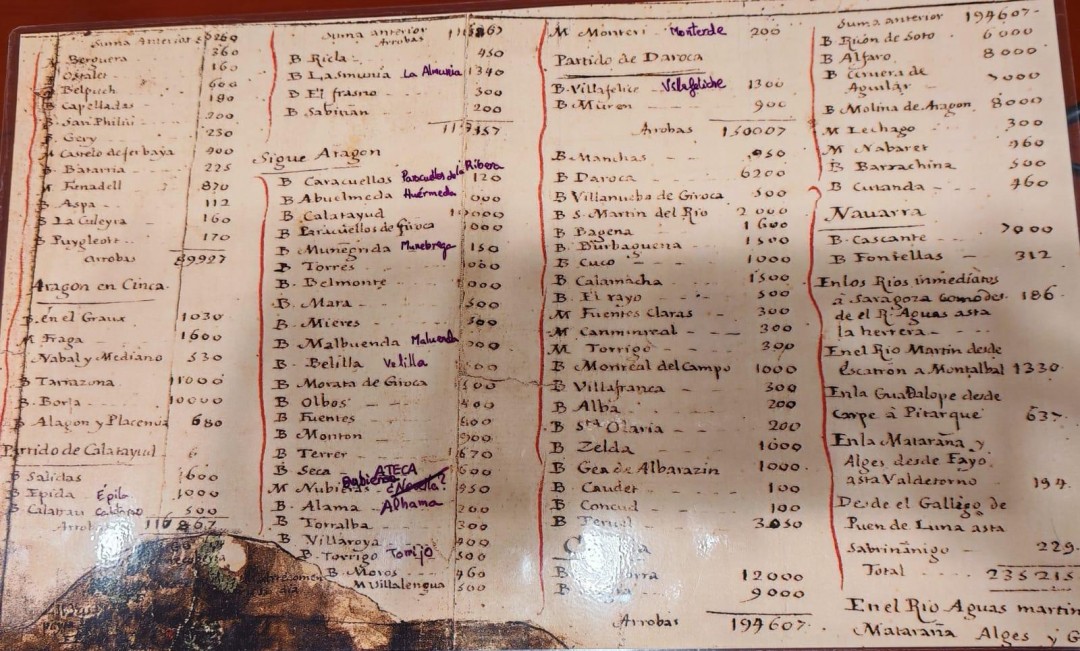 Suma Anterior 260
B. Berguera 360
Ostalet 160
B. Belpuch 600
B. Capelladas 180
B. San Philiu 200
B. Gery 230
M Castelo de ferbaya 900
B. Batarria 225
M Fenadell 870
B Aspa 112
B La Culeyra 160
B Puygleott 170
Arrobas 89927
Aragon en Cinca.
B. en el Graux 1030
M Fraga 1600
Nabal y Mediano 530
B Tarrazona 11000
B. Borja 10000
B Alagon y Placencia 680
Partido de Calatayud
B Salidas 1600
B Epida Épila 1000
B Calatrau 500
Arrobas 116867
Suma anterior
Arrobas
B. Ricla 450
B Lasmunia La Almunia 1340
B El frasno 300
B Sabiñan 200
119157
Sigue Aragon
B Caracuellos Paracuellos de la Ribera 120
B Abuelmeda Huérmeda 000
B Calatayud 10000
B Paracuellos de Giroca 1000
B Munegrida Munebrega 150
B Torres
B. Belmonte 1000
B. Mara 500
B. Mieres 500
B Malbuenda Maluenda
B. Belilla Velilla
B Morata de Giroca 500
B Olbos 400
B Fuentes 600
B Monton 900
B Terrer 1670
B Seca ATECA 1600
M Nubieras 950
B. Alama Alhama 200
B Torralba 300
B. Villaroya 400
B. Torrigo Torrijo 500
B. Moros 460
M Villalengua 500
M Monreri Monterde 200
Partido de Daroca
B. Villafelice Villafeliche 1300
B. Muren 900
Arobas 130007
B. Manchas 950
B Daroca 6200
B Villanueba de Giroca 500
B S. Martin del Rio 2000
B Bagena 1600
B. Burbaguena 1500
B Cuco 1000
B Calamacha 1500
B. El rayo 500
M Fuentes Claras 300
M Canminreal 300
M Torrigo 300
B Monreal del Campo 1000
B Villafranca 300
B Alba 200
B Sta Olaria 200
B Zelda 1000
B Gea de Albarazin 1000
B Caudet 100
B Concud 100
B Teruel 3050
12000
B 9000
Arrobas 194607
Suma anterior 194607
B Rión de Soto 6000
B Alfaro 8000
B Cervera de
Aguilar 7000
B Molina de Aragon 8000
M Lechago 300
M Nabaret 960
B Barrachina 500
B Cutanda 460
Navarra
B. Cascante 7000
B Fontellas 312
En los Rios inmediatos
à Saragoza Como des 186
de el R. Aguas asta
la herrera
En el Rio Martin desde
Escatrón a Montalbal 1330
En la Guadalope desde
Carpe à Pitarque 637
En la Mataraña y
Alges desde Fayo
asta Valdetorno 194
Desde el Gallego de
Puen de Luna asta
Sabriñanigo 229
Total 235215
En el Rio Aguas martin
Mataraña Alges y G